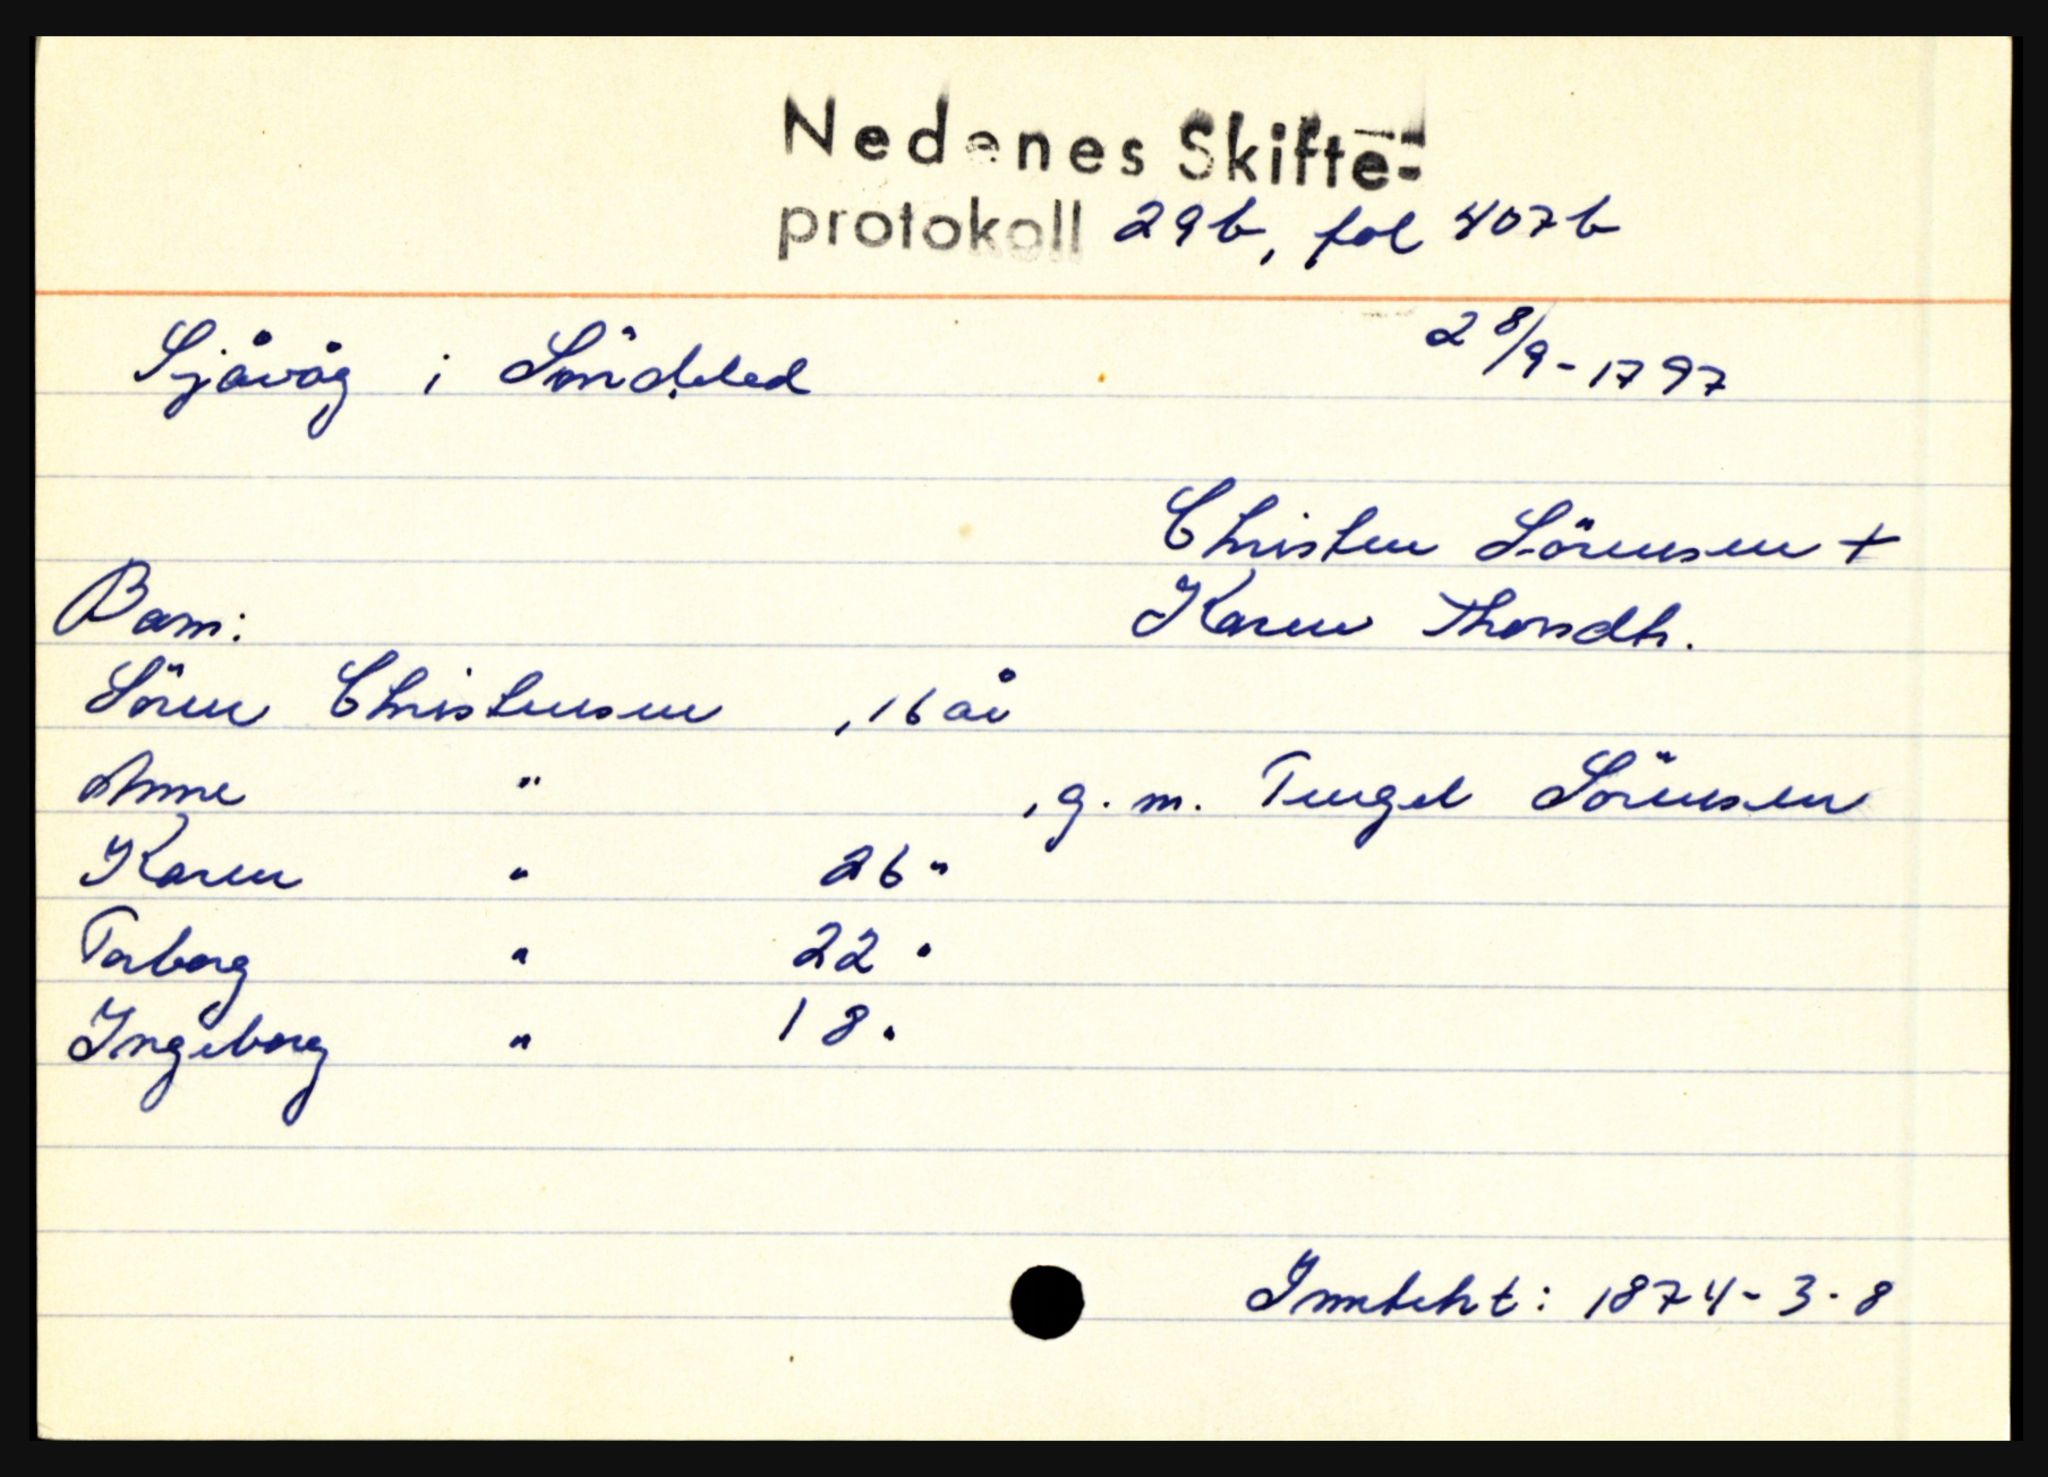 Nedenes Skifte-
protokoll 29b, fol 407b
Sjåvåg i Söndeled 28/9-1797
Christen Sörensen +
Barn: Karen Thorsdtr.
Sören Christensen , 16 år
Anne " , g. m. Tergel Sörensen
Karen " 26 "
Torborg " 22 "
Ingeborg " 18 "
Inntekt: 1874-3-8